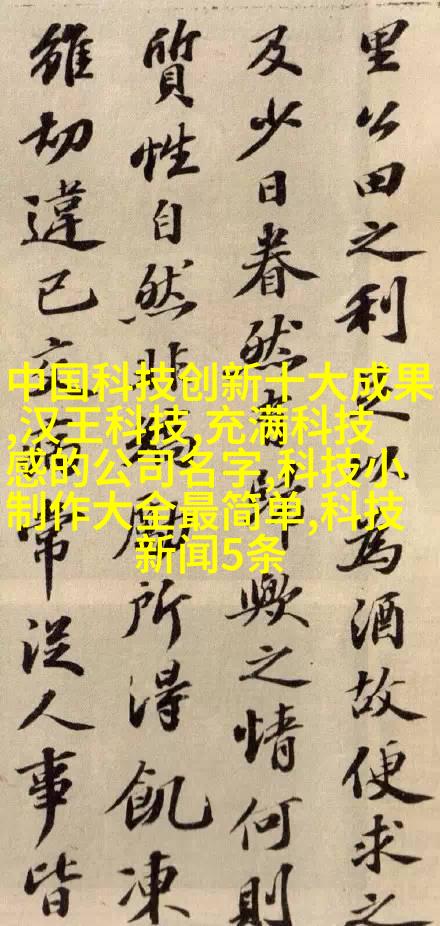 里公田之利足以為酒故便求之
及少日眷然有歸歟之情何則
質性自然非矯厲所得飢凍
雖切違己交病嘗從人事皆
中国科技创新十大成果
,汉王科技,充满科技
感的公司名字,科技小
制作大全最简单,科技
新闻5条